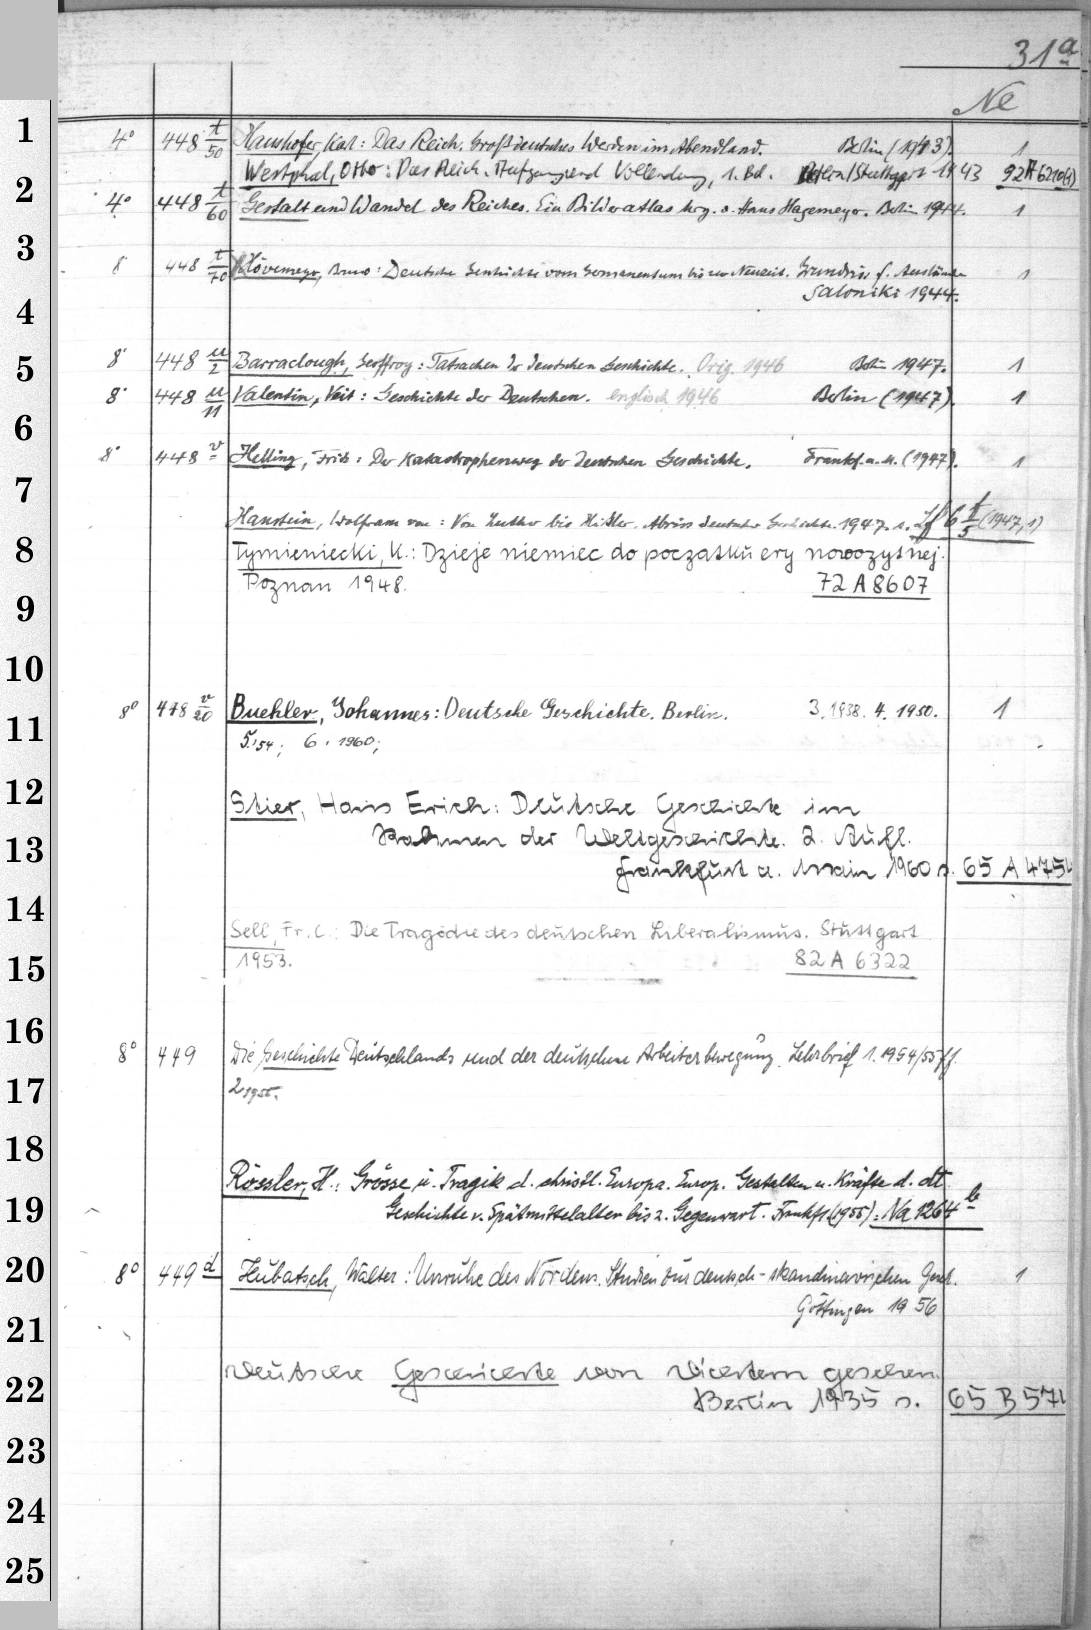 31a
Ne
1
4° 448 t/50 Haushofer, Karl: Das Reich. Großdeutsches Werden im Abendland. Berlin (1943). 1
Westphal, Otto: Das Reich. Aufgang und Vollendung, 1. Bd. Berlin/Stuttgart 1943 92A6210(1)
2
4° 448 t/60 Gestalt und Wandel des Reiches. Ein Bilderatlas hrg. v. Hans Hagemeyer. Berlin 1944. 1
3
8° 448 t/70 Hövemeyer, Bruno: Deutsche Geschichte vom Germanentum bis zur Neuzeit. Grundriss f. Ausländer 1
Saloniki 1944.
4
5
8° 448 u/2 Barraclough, Geoffroy: Tatsachen der deutschen Geschichte. Orig. 1946 Berlin 1947. 1
8° 448 u/11 Valentin, Veit: Geschichte der Deutschen. englisch 1946 Berlin (1947). 1
6
8° 448 v Helling, Fritz: Der Katastrophenweg der deutschen Geschichte. Frankf. a. M. (1947). 1
7
Hanstein, Wolfram von: Von Luther bis Hitler. Abriss deutscher Geschichte. 1947. s. 6 t/5 (1947,1)
8
Tymieniecki, K.: Dzieje niemiec do początku ery nowozytnej.
Poznan 1948. 72 A 8607
9
10
8° 478 v/20 Buehler, Johannes: Deutsche Geschichte. Berlin. 3. 1938. 4. 1950. 1
11
5.'54; 6. 1960;
12
Stier, Hans Erich: Deutsche Geschichte im
Rahmen der Weltgeschichte. 2. Aufl.
13
Frankfurt a. Main 1960 s. 65 A 4754
14
Sell, Fr. C.: Die Tragödie des deutschen Liberalismus. Stuttgart
1953. 82 A 6322
15
16
8° 449 Die Geschichte Deutschlands und der deutschen Arbeiterbewegung. Lehrbrief 1. 1954/55 ff.
17
2 1955.
18
Rössler, H.: Grösse u. Tragik d. christl. Europa. Europ. Gestalten u. Kräfte d. dt.
19
Geschichte v. Spätmittelalter bis z. Gegenwart. Frankft. (1955): Na 1264 b
20
8° 449 d Hubatsch, Walter: Unruhe des Nordens. Studien zur deutsch-skandinavischen Gesch. 1
Göttingen 1956
21
Deutsche Geschichte von Dichtern gesehen.
22
Berlin 1935 s. 65 B 571
23
24
25